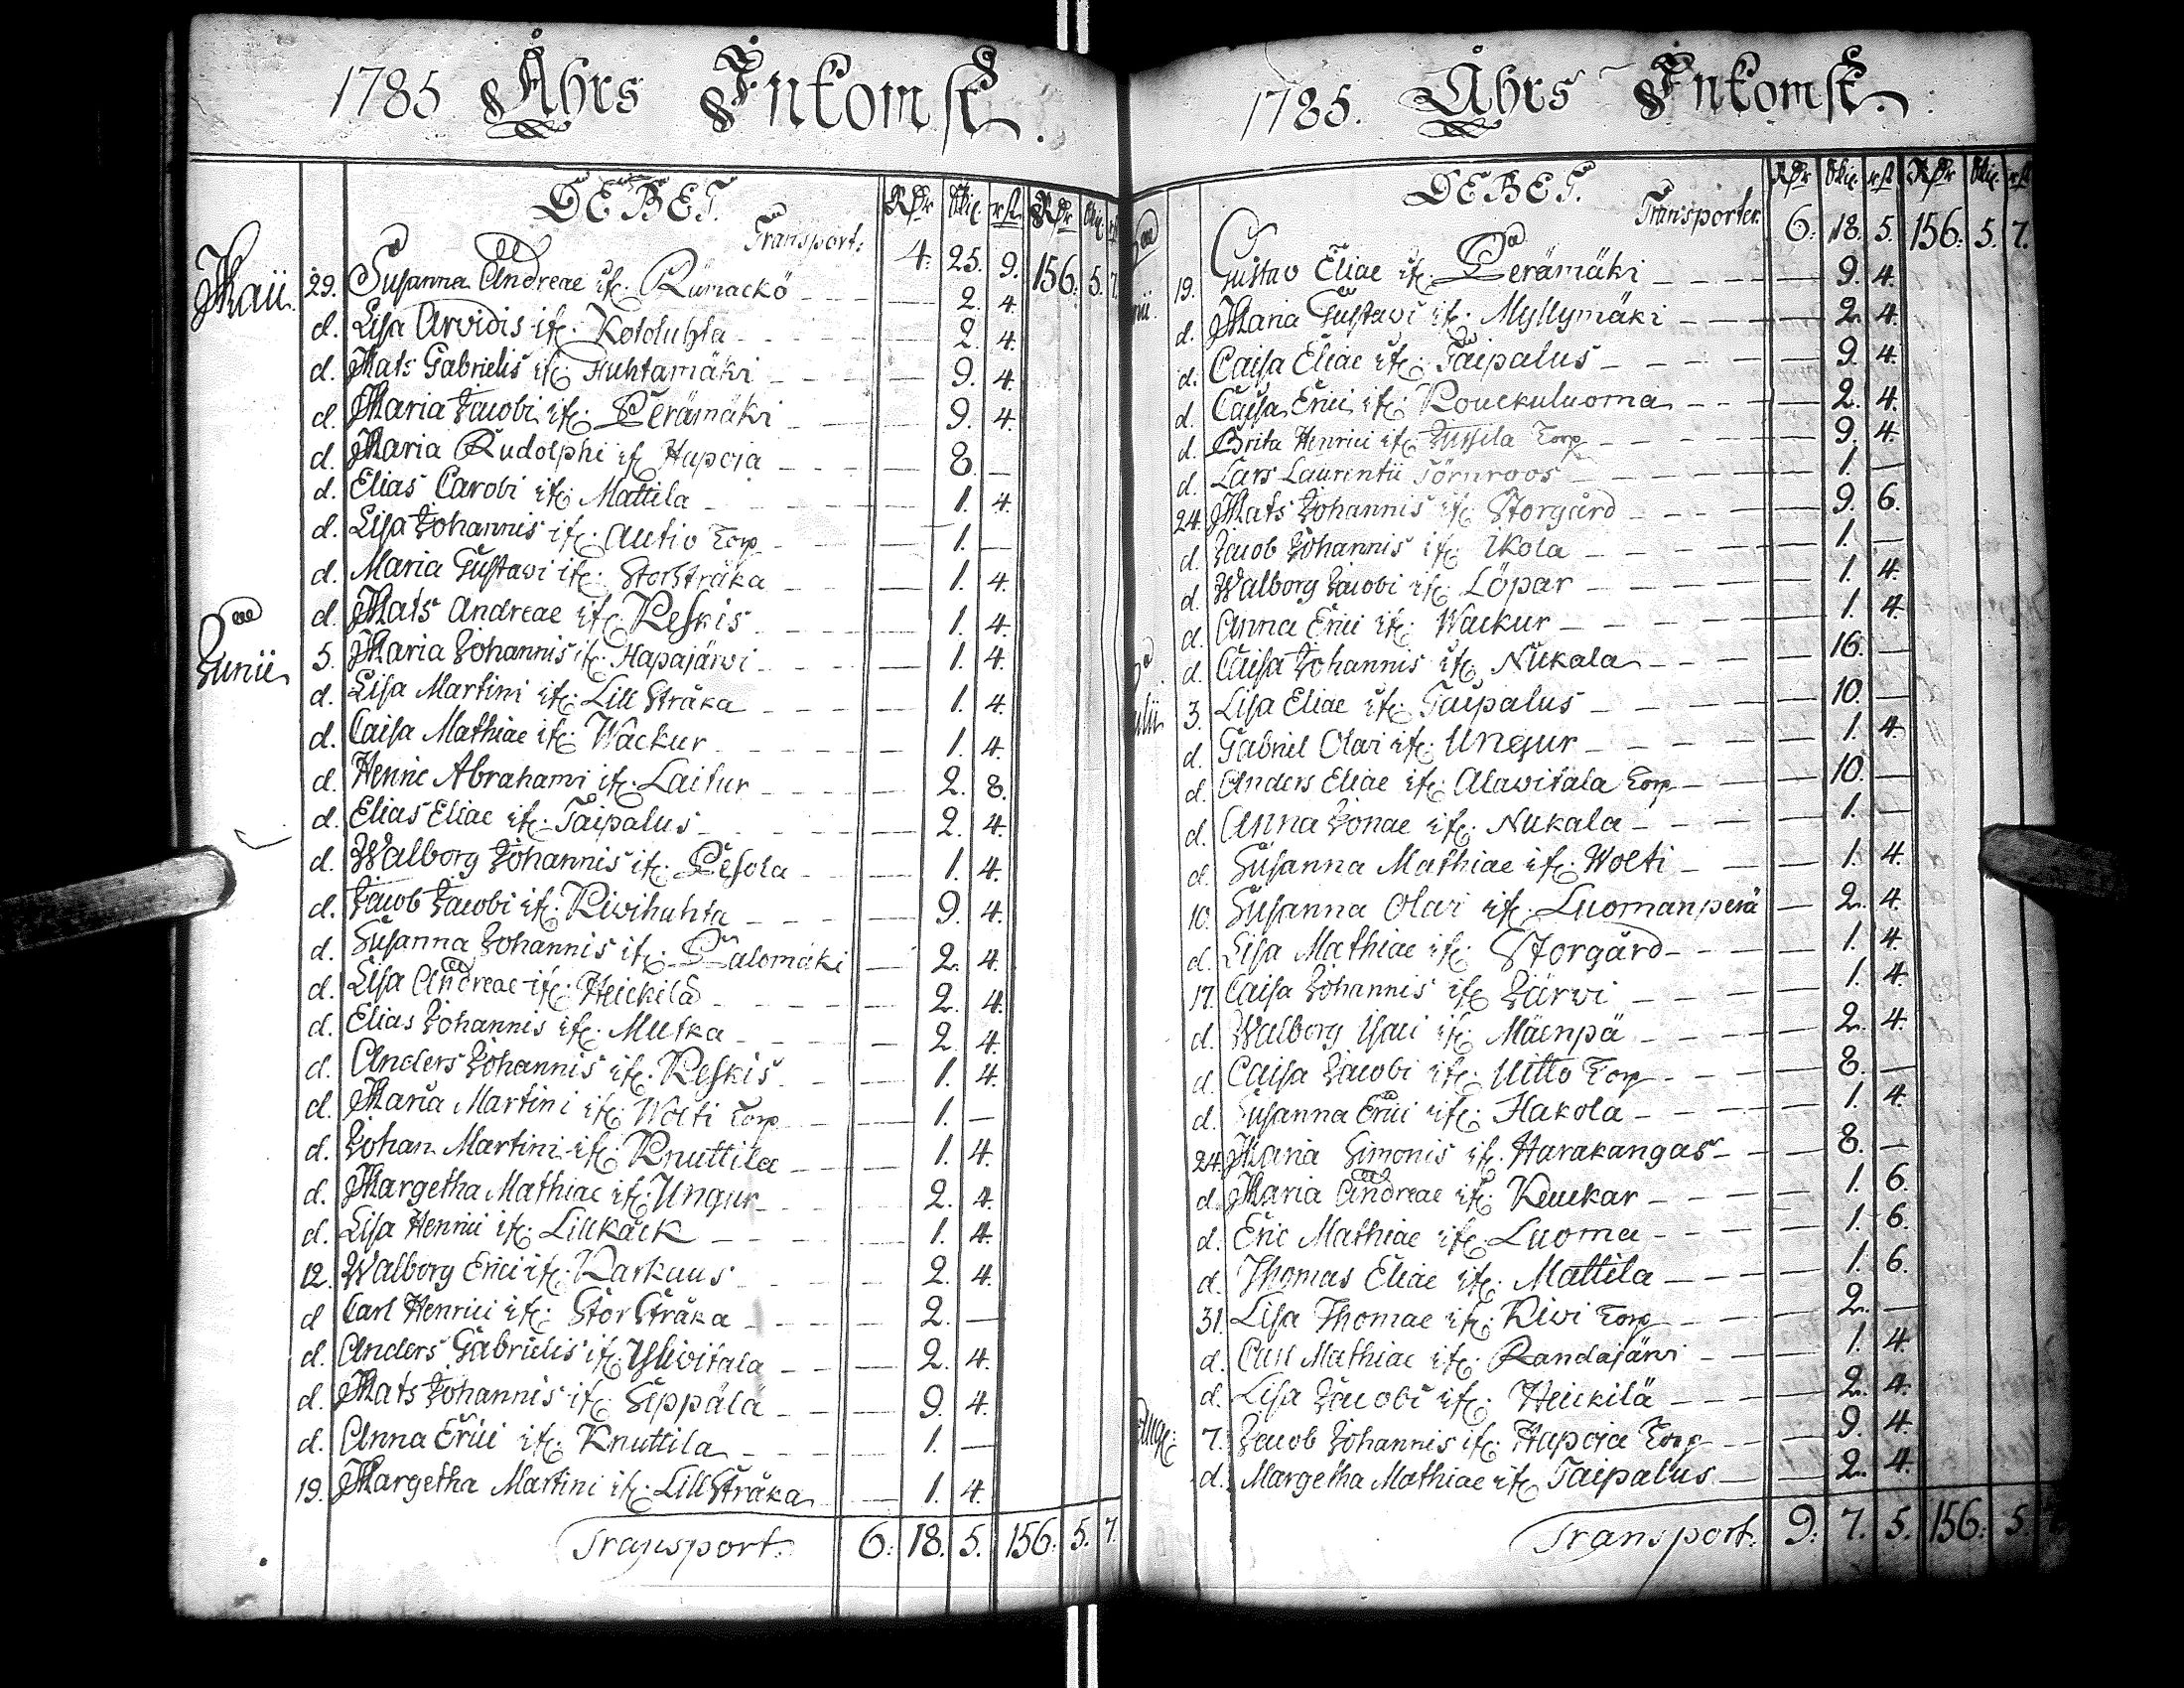 1785 Åhrs Inkomst.
DEBET. Rdr skil. rst Rdr skil. rst
Transport: 4: 25. 9. 156: 5. 7.
Maii 29. Susanna Andreae if. Rumackö — 2. 4.
d. Lisa Arvidis if. Kotoluhta — 2. 4.
d. Mats Gabrielis if. Huhtamäki — 9. 4.
d. Maria Jacobi if. Perämäki — 9. 4.
d. Maria Rudolphi if. Hapoja — 8. —
d. Elias Carobi if. Mattila — 1. 4.
d. Lisa Johannis if. Autio Torp — 1. —
d. Maria Gustavi if. StorStråka — 1. 4.
d. Mats Andreae if. Keskis — 1. 4.
Junii 5. Maria Johannis if. Hapajärvi — 1. 4.
d. Lisa Martini if. Lill Stråka — 1. 4.
d. Caisa Mathiae if. Wackur — 1. 4.
d. Henric Abrahami if. Laitur — 2. 8.
d. Elias Eliae if. Taipalus — 2. 4.
d. Walborg Johannis if. Pesola — 1. 4.
d. Jacob Jacobi if. Kivihuhta — 9. 4.
d. Susanna Johannis if. Palomäki — 2. 4.
d. Lisa Andreae if. Heickilä — 2. 4.
d. Elias Johannis if. Mutka — 2. 4.
d. Anders Johannis if. Keskis — 1. 4.
d. Maria Martini if. Wolti Torp — 1. —
d. Johan Martini if. Knuttila — 1. 4.
d. Margetha Mathiae if. Ungur — 2. 4.
d. Lisa Henrici if. Lillkäck — 1. 4.
12. Walborg Erici if. Karkaus — 2. 4.
d Carl Henrici if. StorStråka — 2. —
d. Anders Gabrielis if. Yliwitala — 2. 4.
d. Mats Johannis if. Sippälä — 9. 4.
d. Anna Erici if. Knuttila — 1. —
19. Margetha Martini if. Lill Stråka — 1. 4.
Transport. 6: 18. 5. 156: 5. 7.
1785. Åhrs Inkomst.
DEBET. Rdr skil. rst Rdr skil. rst
Transporter. 6: 18. 5. 156: 5. 7.
19. Gustav Eliae if. Perämäki — 9. 4.
d. Maria Gustavi if. Myllymäki — 2. 4.
d. Caisa Eliae if. Taipalus — 9. 4.
d. Caisa Erici if. Kouckuluoma — 2. 4.
d. Brita Henrici if. Jussila Torp — 9. 4.
d. Lars Laurentii Törnroos — 1. —
24. Mats Johannis if. Storgård — 9. 6.
d. Jacob Johannis if. Ikola — 1. —
d. Walborg Jacobi if. Löpar — 1. 4.
d. Anna Erici if. Wackur — 1. 4.
d. Caisa Johannis if. Nukala — 16. —
ulii 3. Lisa Eliae if. Taipalus — 10. —
d. Gabriel Olavi if. Ungur — 1. 4.
d. Anders Eliae if. Alavitala Torp — 10. —
d. Anna Jonae if. Nukala — 1. —
d. Susanna Mathiae if. Wolti — 1. 4.
10. Susanna Olavi if. Luomanperä — 2. 4.
d. Lisa Mathiae if. Storgård — 1. 4.
17. Caisa Johannis if. Järvi — 1. 4.
d. Walborg Isaci if. Mäenpä — 2. 4.
d. Caisa Jacobi if. Uitto Torp — 8. —
d. Susanna Erici if. Hakola — 1. 4.
24. Maria Simonis if. Harakangas — 8. —
d. Maria Andreae if. Keuckar — 1. 6.
d. Eric Mathiae if. Luoma — 1. 6.
d. Thomas Eliae if. Mattila — 1. 6.
31. Lisa Thomae if. Kivi Torp — 2. —
d. Carl Mathiae if. Randajärvi — 1. 4.
d. Lisa Jacobi if. Heickilä — 2. 4.
Aug: 7. Jacob Johannis if. Hapoja Torp — 9. 4.
d. Margetha Mathiae if. Taipalus — 2. 4.
Transport. 9: 7. 5. 156: 5.